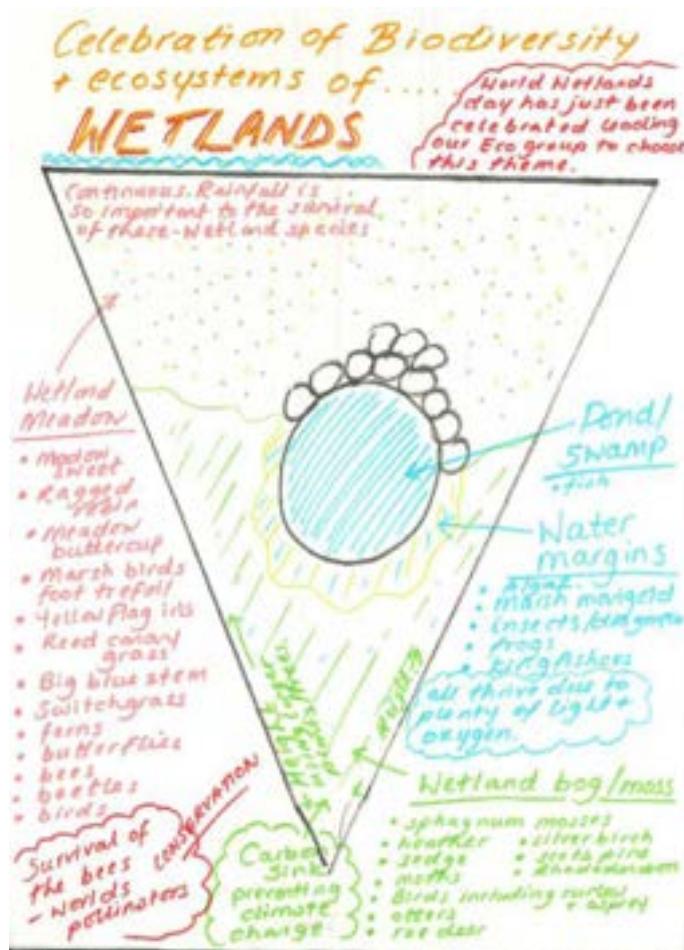 Celebration of Biodiversity
+ ecosystems of.....
WETLANDS
World Wetlands
day has just been
celebrated leading
our Eco group to choose
this theme.
Continuous Rainfall is
so important to the survival
of these wetland species
Wetland
Meadow
• Meadow
sweet
• Ragged
• Meadow
buttercup
• Marsh birds
foot trefoil
• Yellow flag iris
• Reed canary
grass
• Big blue stem
• Switchgrass
• ferns
• butterflies
• bees
• beetles
• birds
Survival of
the bees
- worlds
pollinators
CONSERVATION
Pond/
Swamp
• fish
Water
margins
• algae
• marsh marigold
• insects/
• frogs
• kingfishers
all thrive due to
plenty of light +
oxygen.
Wetland bog/moss
• sphagnum mosses
• heather
• silver birch
• sedge
• scots pine
• moths
• Rhododendron
• Birds including curlew
+ osprey
• otters
• roe deer
Carbon
Sink
preventing
climate
change